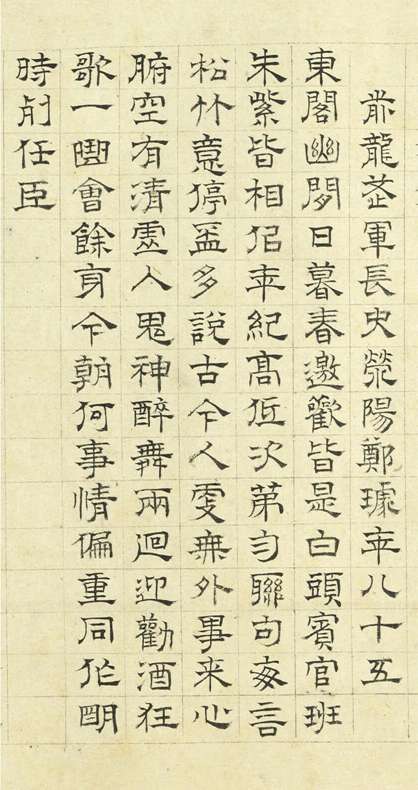 前龍武軍長史滎陽鄭璩年八十五
東閣幽閒日暮春邀歡皆是白頭賓官班
朱紫皆相佀年紀高低次第勻聯句每言
松竹意停盃多說古今人更無外事来心
腑空有清虛人思神醉舞兩迴迎勸酒狂
歌一曲會餘身今朝何事情偏重同作明
時列任臣